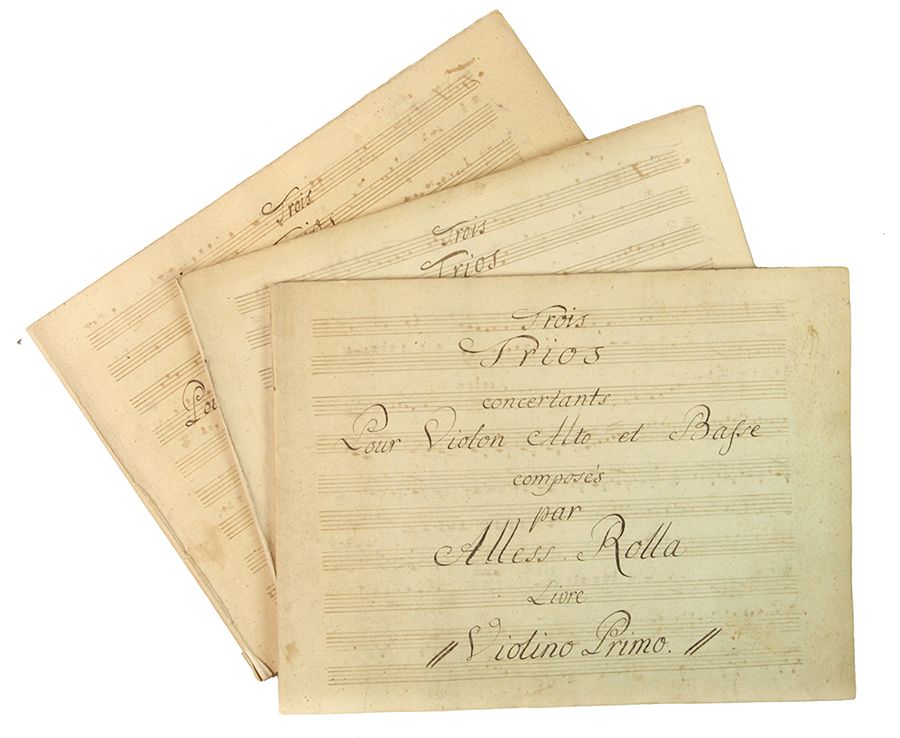 Trois
Trios
Po
Trois
Trios
Trois
Trios
concertants
Pour Violon Alto et Baſse
composés
par
Alless. Rolla
Livre
// Violino Primo. //